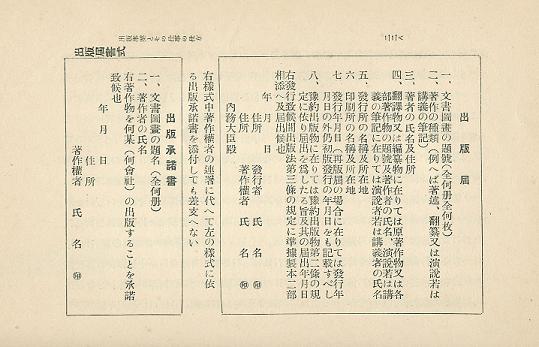 二二八
出版事業とその仕事の仕方
出版届書式
出版届
一、文書圖畫の題號(全何册全何枚)
二、著作の種類(例へば著述、翻纂又は演説若は
講義の筆記)
三、著者の氏名及住所
四、翻譯物又は編纂物に在りては原著作物又は各
部著作物の題號及著作者の氏名、演説若は講
義の筆記に在りては演説者若は講義者の氏名
五、發行所の名稱及所在地
六、印刷所の名稱及所在地
七、發行年月日(再版屆の場合に在りては發行年
月日の外仍初版發行の年月日をも記載すべし
八、豫約出版物に在りては豫約出版物第二條の規
定に依り屆出を爲したる旨及其の屆出年月日
右發行致候間出版法第三條の規定に準據製本二部
相添へ及屆出候也
年 月 日
住所 發行者 氏 名 ㊞
住所 著作權者 氏 名 ㊞
内務大臣殿
右樣式中著作權者の連署に代へて左の樣式に依
る出版承諾書を添付しても差支へない
出版承諾書
一、文書圖畫の題名(全何册)
二、著作者の氏名
右著作物を何某(何會社)の出版することを承諾
致候也
年 月 日
住所
著作權者 氏 名 ㊞